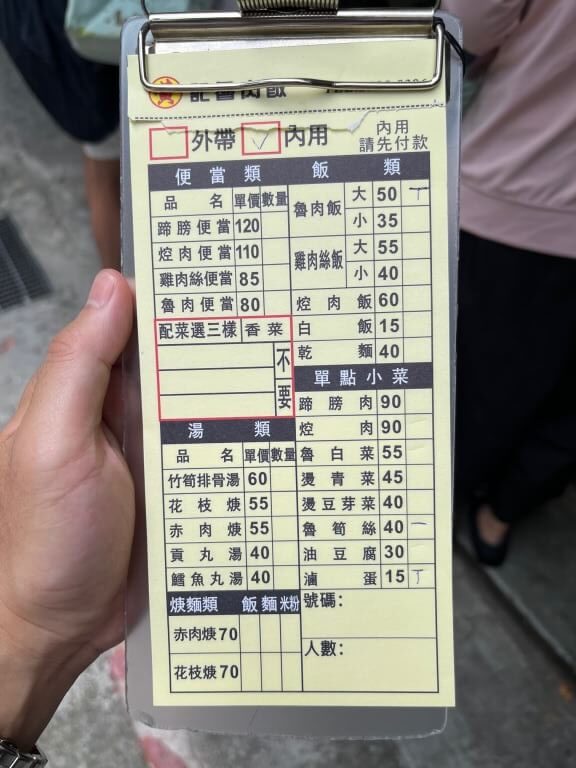 黃 記魯肉飯
外帶 ✓ 內用 內用請先付款
便當類
品名 單價 數量
蹄膀便當 120
焢肉便當 110
雞肉絲便當 85
魯肉便當 80
配菜選三樣 香菜
不要
湯類
品名 單價 數量
竹筍排骨湯 60
花枝焿 55
赤肉焿 55
貢丸湯 40
鱈魚丸湯 40
焿麵類 飯 麵 米粉
赤肉焿 70
花枝焿 70
飯類
魯肉飯 大 50 丅
小 35
雞肉絲飯 大 55
小 40
焢肉飯 60
白飯 15
乾麵 40
單點小菜
蹄膀肉 90
焢肉 90
魯白菜 55
燙青菜 45
燙豆芽菜 40
魯筍絲 40 一
油豆腐 30
滷蛋 15 丅
號碼：
人數：